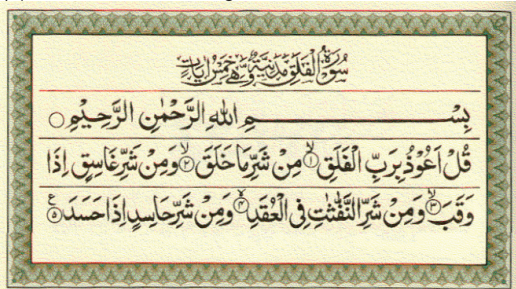 سُوْرَةُ الْفَلَقِ مَدَنِيَّةٌ وَّهِيَ خَمْسُ اٰيَاتٍ
بِسْــــــــمِ اللهِ الرَّحْمٰنِ الرَّحِيْمِ ○
قُلْ اَعُوْذُ بِرَبِّ الْفَلَقِ ۙ﴿۱﴾ مِنْ شَرِّ مَا خَلَقَ ۙ﴿۲﴾ وَمِنْ شَرِّ غَاسِقٍ اِذَا
وَقَبَ ۙ﴿۳﴾ وَمِنْ شَرِّ النَّفّٰثٰتِ فِى الْعُقَدِ ۙ﴿۴﴾ وَمِنْ شَرِّ حَاسِدٍ اِذَا حَسَدَ ﴿۵﴾ ع